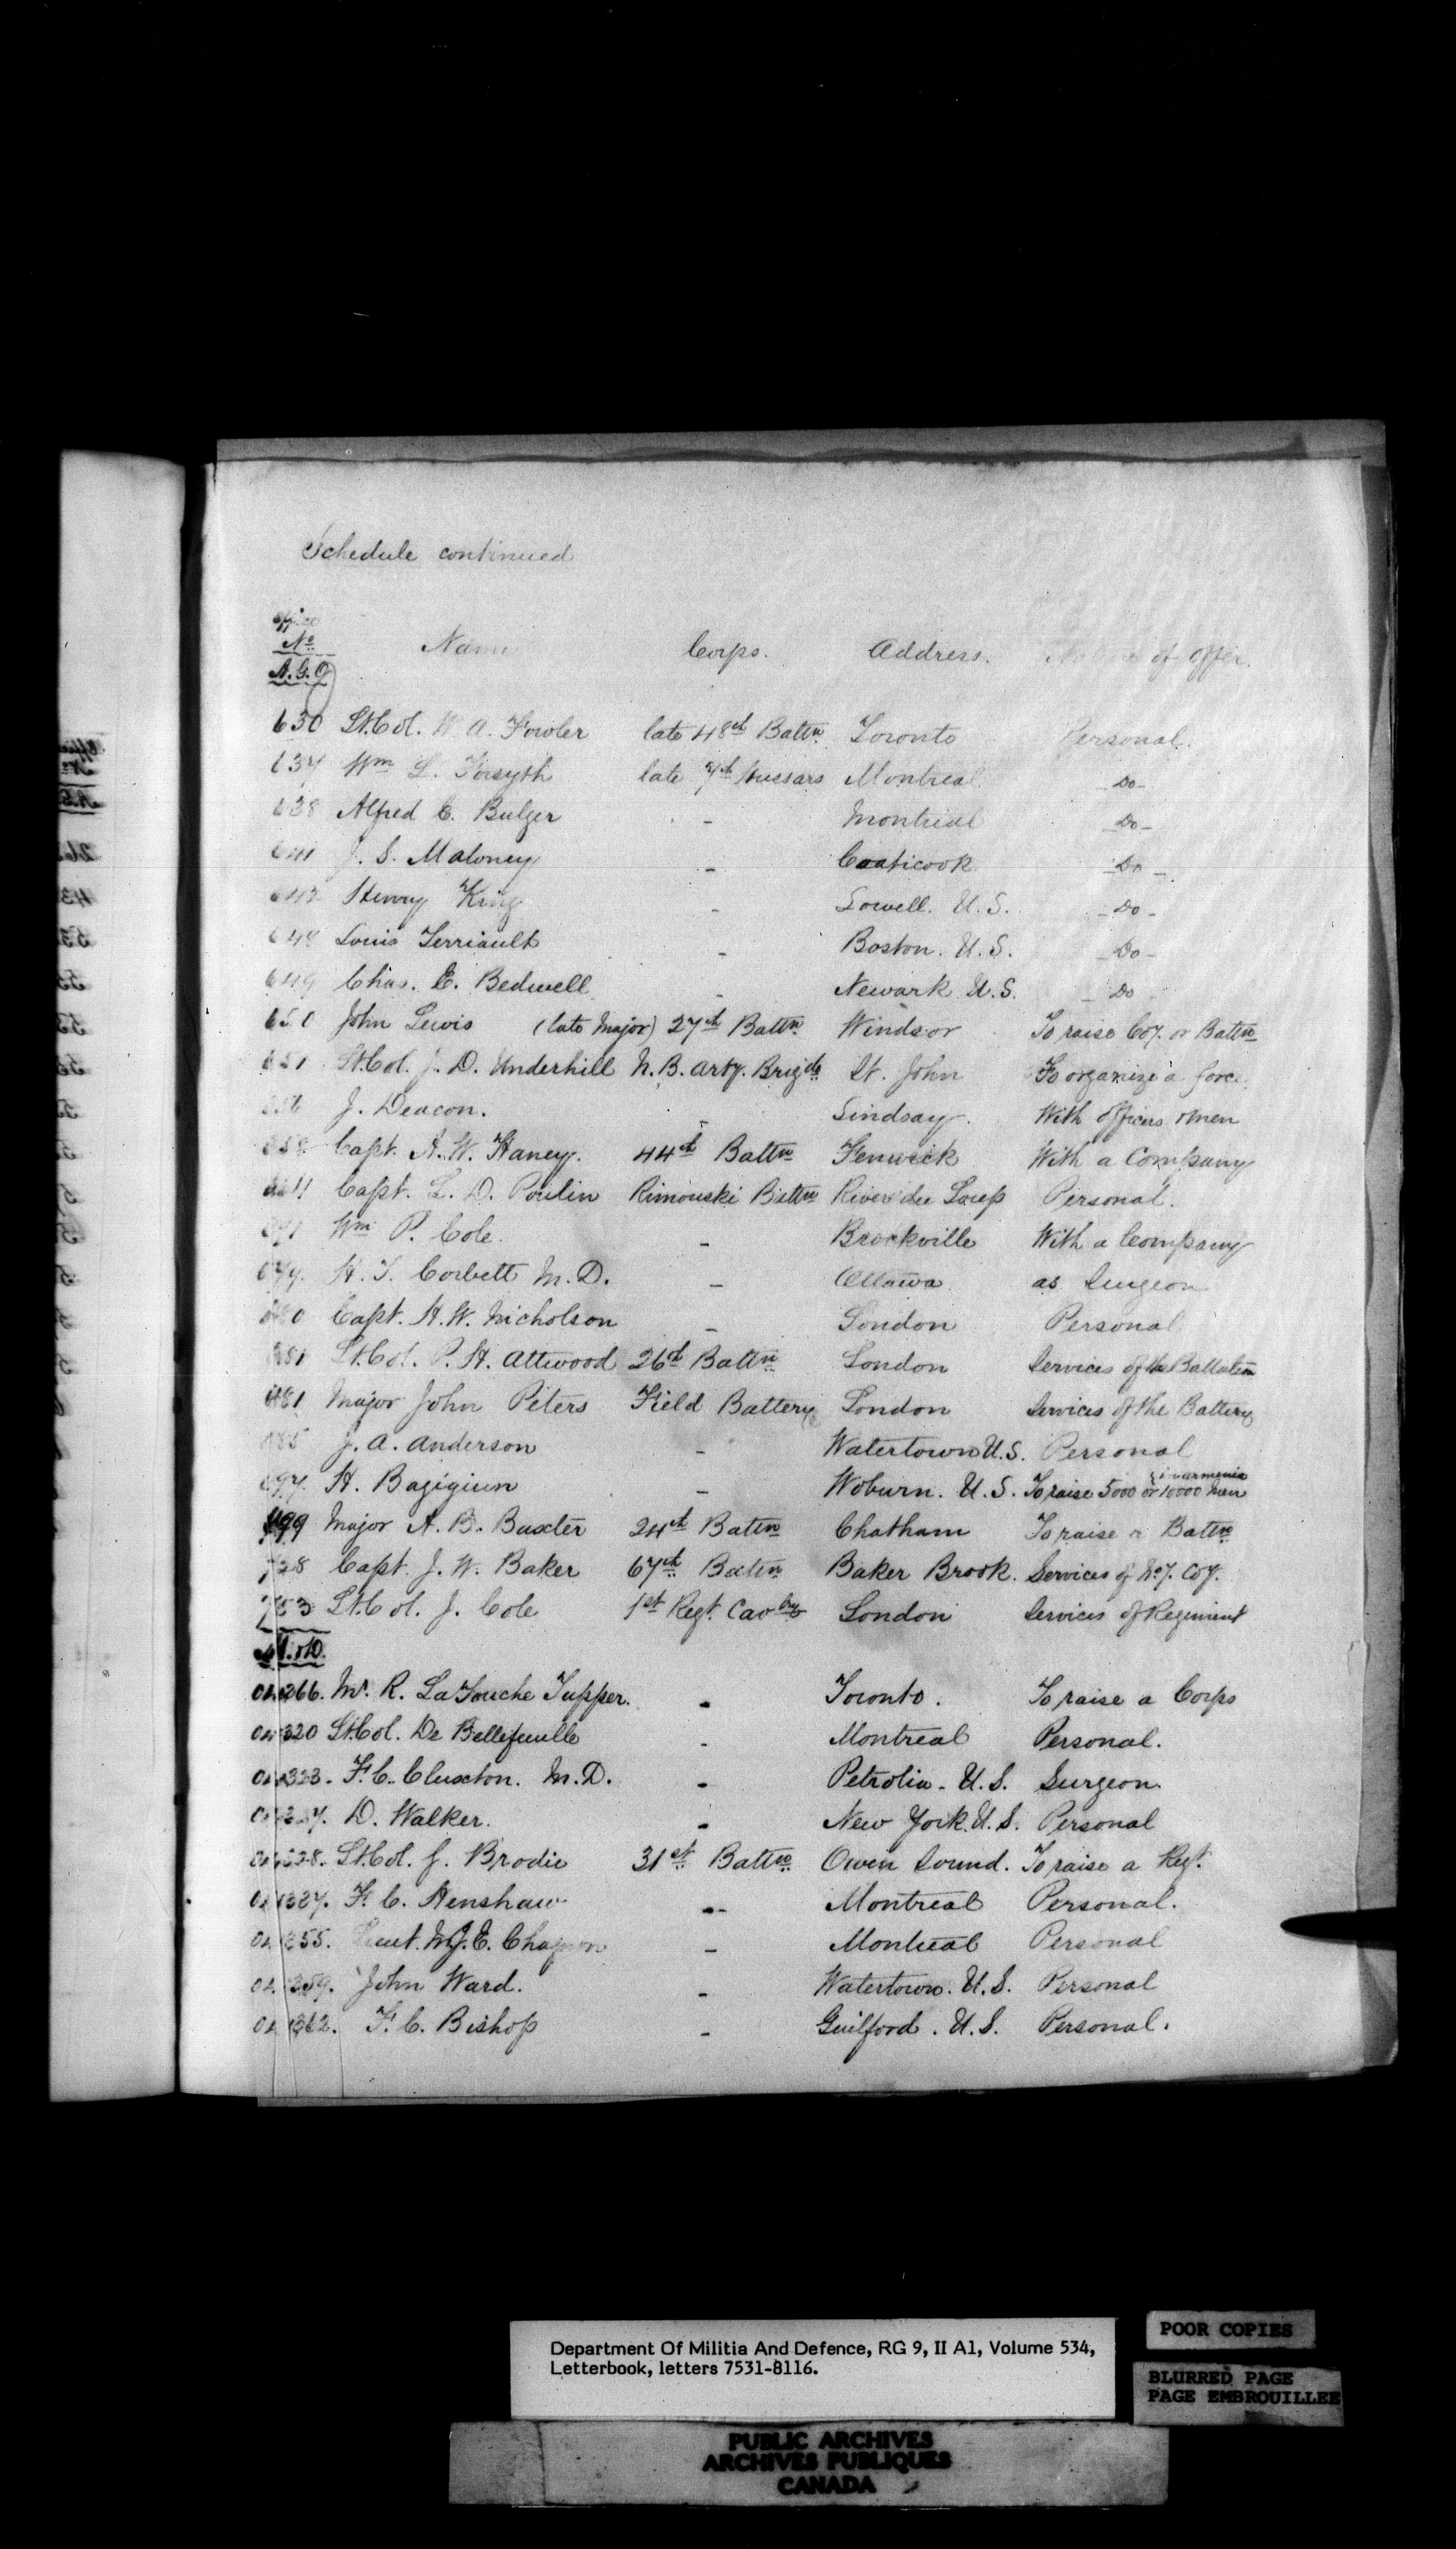 Schedule continued
office
No
Name Corps. Address. Nature of Offer.
A.G.O
630 Lt.Col. W. A. Fowler late 48th Battn Toronto Personal.
637 Wm L. Forsyth late 7th Hussars Montreal -Do-
638 Alfred C. Bulger - Montreal -Do-
641 J. S. Maloney - Coaticook -Do-
642 Henry King - Lowell. U.S. -Do-
648 Louis Terriault - Boston. U.S. -Do-
649 Chas. E. Bedwell - Newark U.S. - Do
650 John Lewis (late Major) 27th Battn Windsor To raise Coy. or Battn
651 Lt.Col. J. D. Underhill N.B. Arty. Brigde St. John To organize a force.
J. Deacon. - Lindsay. With officers & men
658 Capt. A. W. Haney. 44th Battn Fenwick With a Company
Capt. L. D. Poulin Rimouski Battn River du Loup Personal.
Wm P. Cole. - Brockville With a Company
679. H. T. Corbett M.D. - Ottawa as Surgeon
680 Capt. H. W. Nicholson - London Personal
681 Lt.Col. P. H. Attwood 26th Battn London Services of the Battalion
681 Major John Peters Field Battery London Services of the Battery
685 J. A. Anderson - Watertown U.S. Personal
in armenia
697. H. - Woburn. U.S. To raise 5000 or 10000 men
699 Major A. B. Baxter 24th Battn Chatham To raise a Battn
728 Capt. J. W. Baker 67th Battn Baker Brook. Services of No 7. Coy.
753 Lt.Col. J. Cole 1st Regt. Cavlry London Services of Regiment
266. Mr. R. LaTouche Tupper. - Toronto. To raise a Corps
320 Lt.Col. De Bellefeuille - Montreal Personal.
323. F. C. Cluxton. M.D. - Petrolia. U.S. Surgeon.
327. D. Walker. - New York. U.S. Personal
328. Lt.Col. J. Brodie 31st Battn Owen Sound. To raise a Regt.
F. C. Henshaw - Montreal Personal.
355. Lieut. M.J.E. - Montreal Personal
359. John Ward. - Watertown. U.S. Personal
362. F. C. Bishop - Guilford. U.S. Personal.
Department Of Militia And Defence, RG 9, II A1, Volume 534,
Letterbook, letters 7531-8116.
POOR COPIES
BLURRED PAGE
PAGE EMBROUILLEE
PUBLIC ARCHIVES
ARCHIVES PUBLIQUES
CANADA